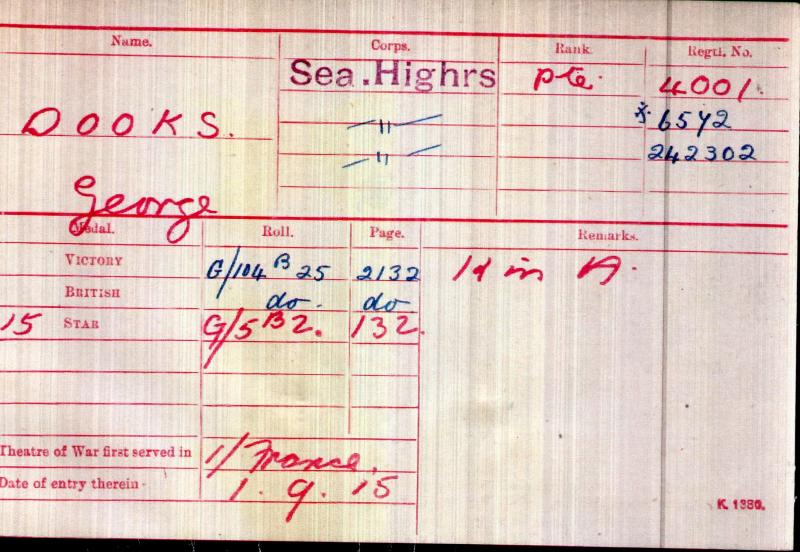 Name. Corps. Rank. Regtl. No.
DOOKS. Sea. Highrs Pte. 4001.
" * 6572
" 242302
George
Medal. Roll. Page. Remarks.
VICTORY G/104 B 25 2132 K in A.
BRITISH do. do
15 STAR G/5 B 2. 132.
Theatre of War first served in 1/ France.
Date of entry therein 1. 9. 15
K. 1380.